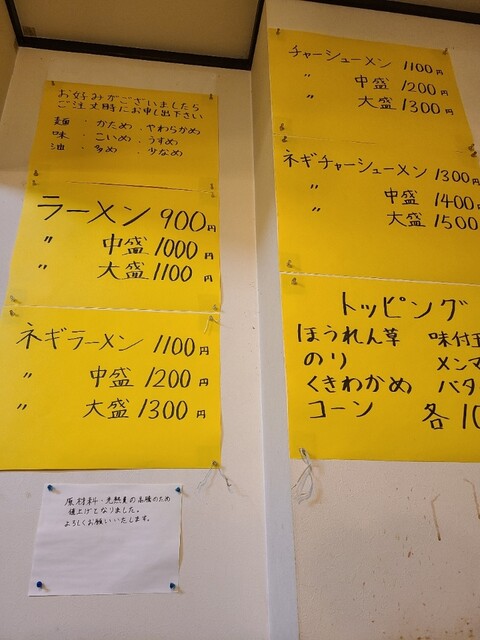 お好みがございましたら
ご注文時にお申し出下さい
麺・かため、やわらかめ
味・こいめ、うすめ
油・多め、少なめ
ラーメン 900円
〃 中盛 1000円
〃 大盛 1100円
ネギラーメン 1100円
〃 中盛 1200円
〃 大盛 1300円
原材料・光熱費の高騰のため
値上げとなりました。
よろしくお願いいたします。
チャーシューメン 1100円
〃 中盛 1200円
〃 大盛 1300円
ネギチャーシューメン 1300円
〃 中盛 1400円
〃 大盛 1500
トッピング
ほうれん草 味付
のり メンマ
くきわかめ バタ
コーン 各10